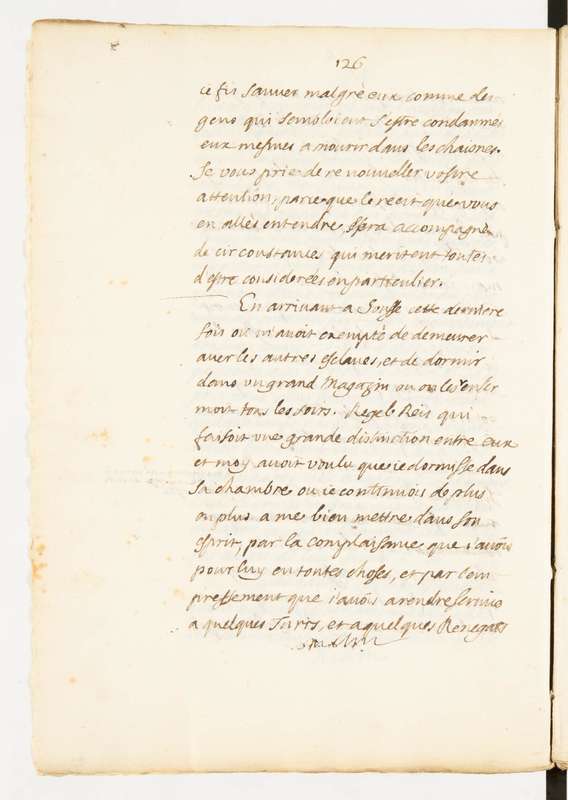 126
ce fis sauver malgré eux comme des
gens qui sembloient s'estre condamnés
eux mesmes a mourir dans les chaisnes.
Je vous prie de renouveller vostre
attention, parce que le recit que vous
en allés entendre, sera accompagné
de circonstances qui meritent toutes
d'estre considerées en particulier.
En arrivant a Sousse cette derniere
fois on m'avoit exempté de demeurer
avec les autres esclaves, et de dormir
dans un grand Magazin ou on les enfer
moit tous les soirs. Regeb Reis qui
faisoit une grande distinction entre eux
et moy avoit voulu que je dormisse dans
sa chambre ou je continuois de plus
en plus a me bien mettre dans son
esprit, par la complaisance que j'avois
pour luy en toutes choses, et par l'em
pressement que j'avois a rendre service
a quelques Turcs, et a quelques Renegats